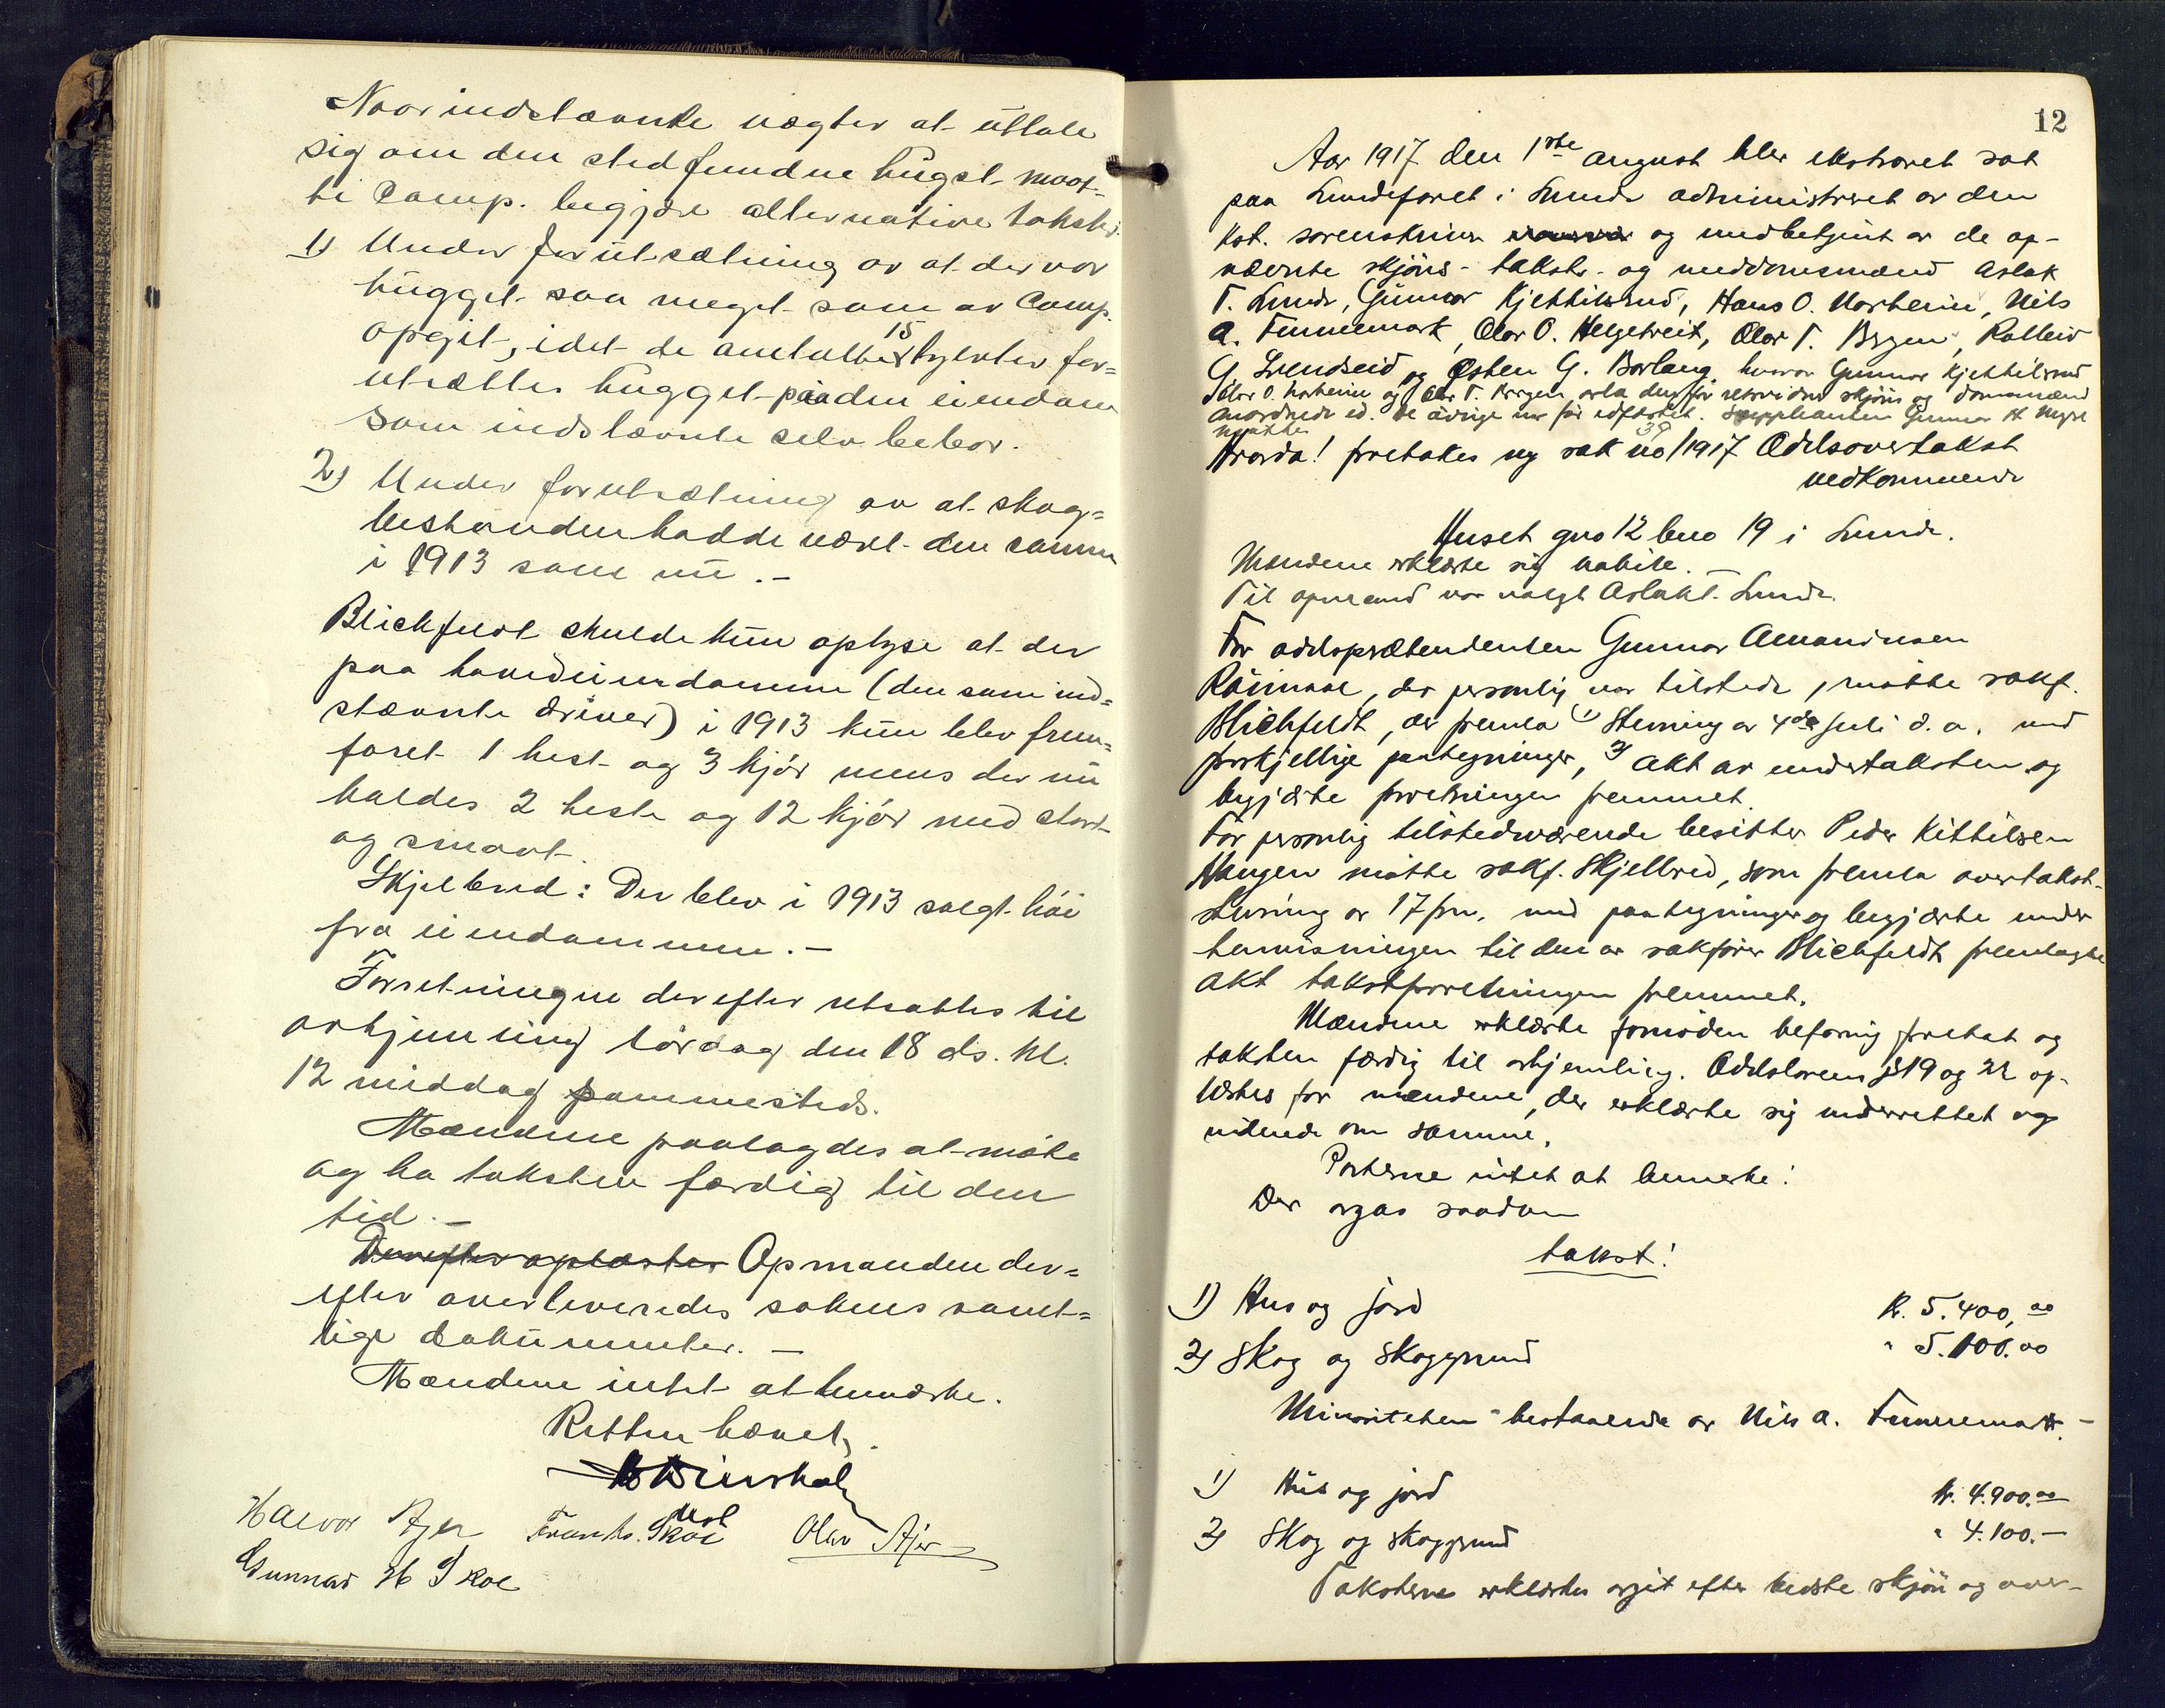 Naar indstævnte nægter at uttale
sig om den stedfundne hugst maat-
te Comp. begjære alternative takster.
1) Under forutsætning av at der var
hugget saa meget som av Comp.
opgit, idet de antatte 15 tylvter for=
utsættes hugget paa den eiendom
som indstævnte selv bebor.
2) Under forutsætning av at skog=
bestanden hadde været den samme
i 1913 som nu.-
Blichfeldt skulde kun oplyse at der
paa hovedeiendommen (den som ind=
stævnte driver) i 1913 kun blev frem=
foret 1 hest og 3 kjör mens der nu
holdes 2 heste og 12 kjör med stort
og smaat.
Skjelbred: Der blev i 1913 solgt höi
fra eiendommen.-
Forretningen derefter utsattes til
avhjemling lördag den 18 ds. kl.
12 middag sammesteds.
Mændene paalagdes at möte
og ha taksten færdig til den
tid.-
Derefter oplæstes Opmanden der=
efter overleveredes sakens samt=
lige dokumenter.-
Mændene intet at bemerke.
Retten hævet.
Halvor Ajer Olav Ajer
Gunnar H Skoe
12
Aar 1917 den 1ste august blev ekstraret sat
paa Lundefaret i Lunde administreret av den
kst. sorenskriver og medbetjent av de op-
nævnte skjöns- takst- og meddomsmænd Aslak
T. Lunde, Gunnar Kjettilsrud, Hans O. Norheim, Nils
A. Finnemark, Olav O. Helgetveit, Olav T. Bergen, Rolleiv
G. Svendseid og Østen G. Barlaug hvorav Gunnar Kjettilsrud
O. Norheim og Olav T. Bergen avla den for skjöns og domsmænd
anordnede ed. De övrige var för edfæstet. Suppleanten Gunnar H Mype
mötte
Hvorda! foretokes ny sak no 39/1917 Odelsovertakst
vedkommende
Huset gno 12 bno 19 i Lunde.
Mændene erklærte sig habile.
Til opmand var valgt Aslak T. Lunde.
For odelsprætendenten Gunnar Amundsen
Röimaal, der personlig var tilstede, mötte sakf.
Blichfeldt, der fremla 1) Stevning av 4de juli d.a. med
forskjellige paategninger, 2) Akt av undertaksten og
begjærte forretningen fremmet.
For personlig tilstedeværende besitter Peder Kittilsen
Haugen mötte sakf. Skjelbred, som fremla overtakst-
stevning av 17 f.m. med paategninger og begjærte under
henvisningen til den av sakförer Blichfeldt fremlagte
akt takstforretningen fremmet.
Mændene erklærte fornöden befaring foretat og
taksten færdig til avhjemling. Odelslovens §§19 og 22 op-
læstes for mændene, der erklærte sig underrettet og
vidende om samme.
Parterne intet at bemerke.
Der avgas saadan
takst:
1) Hus og jord kr. 5.400,00
2) Skog og skoggrund " 5.100.00
Minoriteten - bestaaende av Nils A. Finnemark.-
1) Hus og jord kr. 4.900.00
2) Skog og skoggrund " 4.100.-
Taksterne erklærtes avgit efter bedste skjön og over-